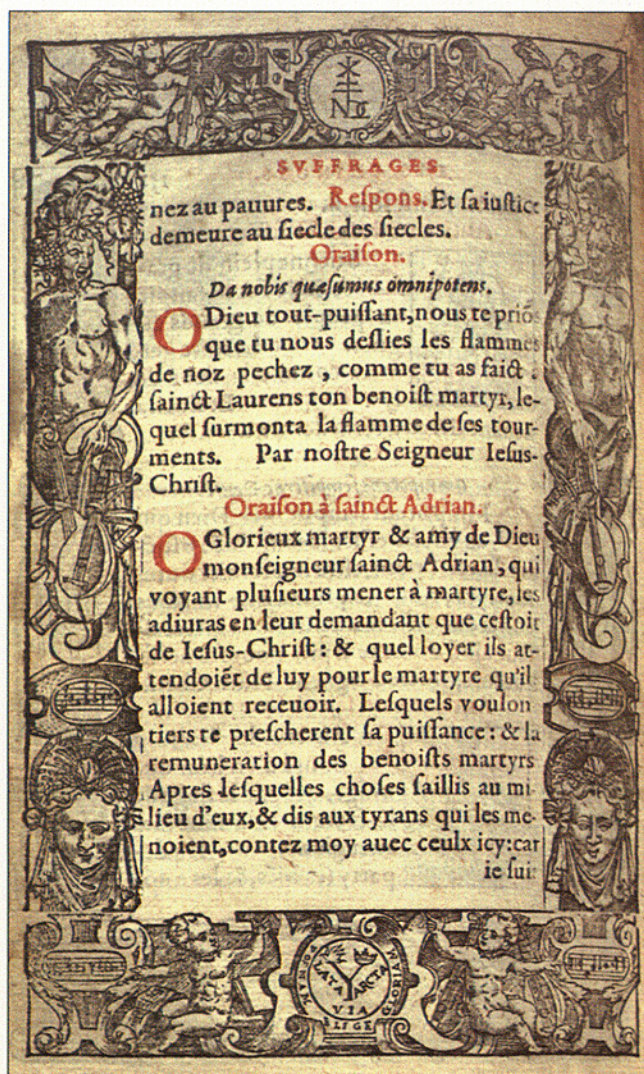 SVFFRAGES
nez au pauures. Reſpons. Et ſa iuſtice
demeure au ſiecle des ſiecles.
Oraiſon.
Da nobis quæſumus omnipotens.
O Dieu tout-puiſſant, nous te priõs
que tu nous deſlies les flammes
de noz pechez, comme tu as faict
ſainct Laurens ton benoiſt martyr, le-
quel ſurmonta la flamme de ſes tour-
ments. Par noſtre Seigneur Ieſus-
Chriſt.
Oraiſon à ſainct Adrian.
O Glorieux martyr & amy de Dieu
monſeigneur ſainct Adrian, qui
voyant pluſieurs mener à martyre, les
adiuras en leur demandant que ceſtoit
de Ieſus-Chriſt : & quel loyer ils at-
tendoiẽt de luy pour le martyre qu'il
alloient receuoir. Leſquels voulon
tiers te preſcherent ſa puiſſance : & la
remuneration des benoiſts martyrs
Apres leſquelles choſes ſaillis au mi
lieu d'eux, & dis aux tyrans qui les me-
noient, contez moy auec ceulx icy: car
ie ſui
LATA ARCTA
VIA